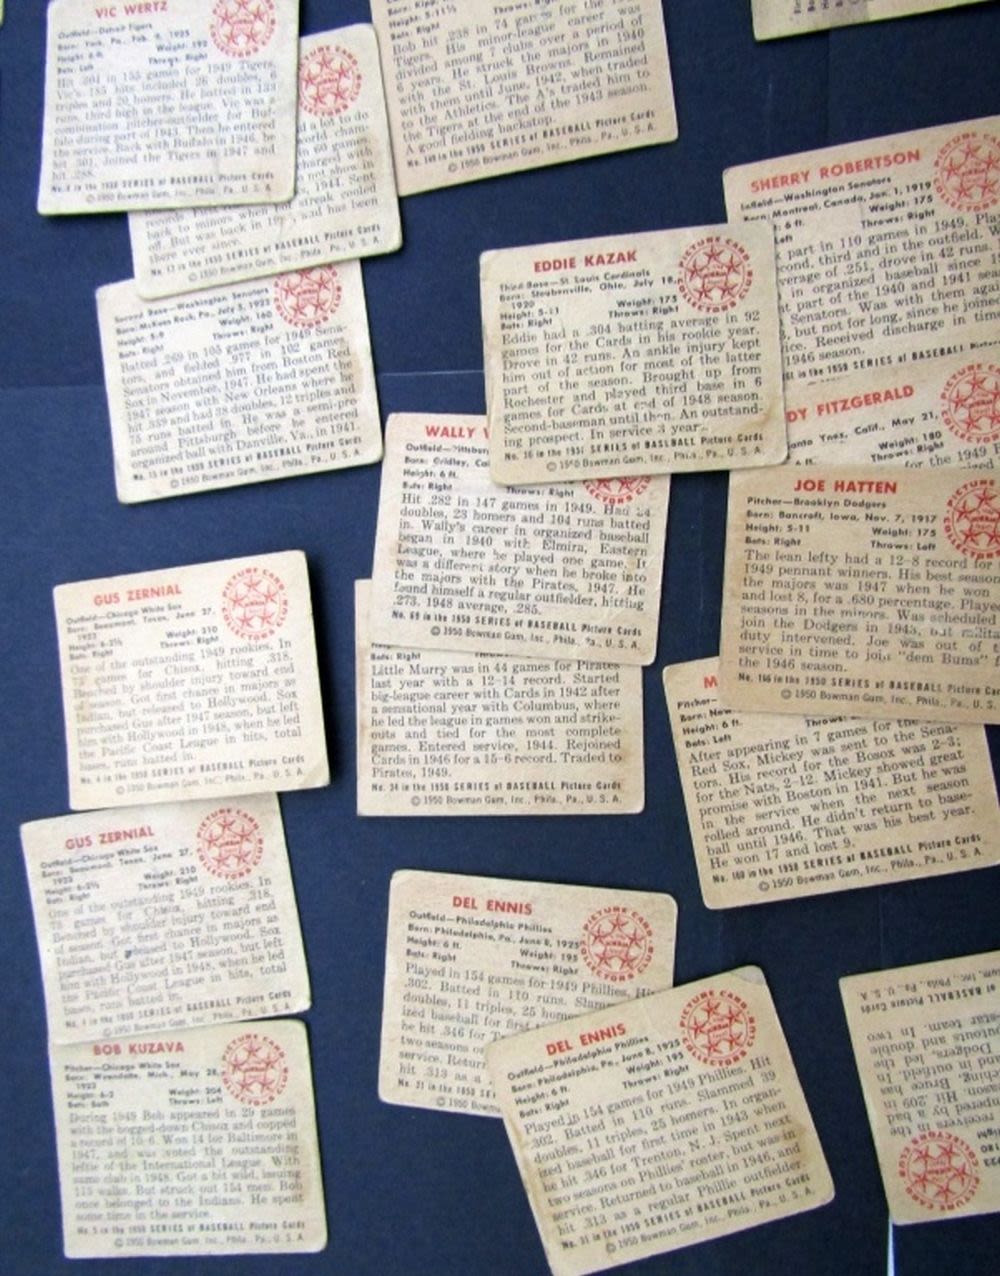 VIC WERTZ
Outfield—Detroit Tigers
Born: York, Pa., Feb. 9, 1925
Height: 6 ft. Weight: 192
Bats: Left Throws: Right
Hit .304 in 155 games for 1949 Tigers.
Vic's 185 hits included 26 doubles, 6
triples and 20 homers. He batted in 133
runs, third high in the league. Vic was a
combination pitcher-outfielder for Buf-
falo during part of 1943. Then he entered
the service. Back with Buffalo in 1946, he
hit .301. Joined the Tigers in 1947 and
hit .288.
in the 1950 SERIES of BASEBALL Picture Cards
© 1950 Bowman Gum, Inc., Phila., Pa., U. S. A.
PICTURE CARD
COLLECTORS CLUB
d a lot to do
world cham-
in 60 games.
charged with
not show in
1944. Sent
back to minors when streak cooled
off. But was back in and has been
there ever since.
No. 12 in the 1950 SERIES of BASEBALL Picture Cards
© 1950 Bowman Gum, Inc., Phila., Pa., U. S. A.
Height: 5-11½ Throws: Right
Bob hit .238 in 74 games for the
Tigers. His minor-league career was
divided among 7 clubs over a period of
6 years. He struck the majors in 1940
with the St. Louis Browns. Remained
with them until June, 1942, when traded
to the Athletics. The A's traded him to
the Tigers at the end of the 1943 season.
A good fielding backstop.
in the 1950 SERIES of BASEBALL Picture Cards
© 1950 Bowman Gum, Inc., Phila., Pa., U. S. A.
Second Base—Washington Senators
Born: McKees Rock, Pa., July 5, 1923
Height: 5-9 Weight: 160
Bats: Right Throws: Right
Batted .269 in 105 games for 1949 Sena-
tors, and fielded .977 in 102 games.
Senators obtained him from Boston Red
Sox in November, 1947. He had spent the
1947 season with New Orleans where he
hit .339 and had 38 doubles, 12 triples and
75 runs batted in. He was a semi-pro
around Pittsburgh before he entered
organized ball with Danville, Va., in 1941.
No. 15 in the 1950 SERIES of BASEBALL Picture Cards
© 1950 Bowman Gum, Inc., Phila., Pa., U. S. A.
SHERRY ROBERTSON
Infield—Washington Senators
Born: Montreal, Canada, Jan. 1, 1919
6 ft. Weight: 175
Left Throws: Right
part in 110 games in 1949. Pla
cond, third and in the outfield. W
erage of .251, drove in 42 runs.
in organized baseball since 19
part of the 1940 and 1941 season
Senators. Was with them aga
, but not for long, since he joined
ice. Received discharge in time
1946 season.
161 in the 1950 SERIES of BASEBALL Picture
© 1950 Bowman Gum, Inc., Phila.
EDDIE KAZAK
Third Base—St. Louis Cardinals
Born: Steubenville, Ohio, July 18,
1920 Weight: 175
Height: 5-11 Throws: Right
Bats: Right
Eddie had a .304 batting average in 92
games for the Cards in his rookie year.
Drove in 42 runs. An ankle injury kept
him out of action for most of the latter
part of the season. Brought up from
Rochester and played third base in 6
games for Cards at end of 1948 season.
Second-baseman until then. An outstand-
ing prospect. In service 3 years.
No. 36 in the 1950 SERIES of BASEBALL Picture Cards
© 1950 Bowman Gum, Inc., Phila., Pa., U. S. A.
PICTURE CARD
COLLECTORS CLUB
DY FITZGERALD
Santa Ynez, Calif., May 21,
Weight: 180
Throws: Right
for the 1949
WALLY W
Outfield—Pittsbur
Born: Gridley, Cal
Height: 6 ft.
Bats: Right Throws: Right
Hit .282 in 147 games in 1949. Had 24
doubles, 23 homers and 104 runs batted
in. Wally's career in organized baseball
began in 1940 with Elmira, Eastern
League, where he played one game. It
was a different story when he broke into
the majors with the Pirates, 1947. He
found himself a regular outfielder, hitting
.273. 1948 average, .285.
No. 69 in the 1950 SERIES of BASEBALL Picture Cards
© 1950 Bowman Gum, Inc., Phila., Pa., U. S. A.
JOE HATTEN
Pitcher—Brooklyn Dodgers
Born: Bancroft, Iowa, Nov. 7, 1917
Height: 5-11 Weight: 175
Bats: Right Throws: Left
The lean lefty had a 12-8 record for
1949 pennant winners. His best season
the majors was 1947 when he won
and lost 8, for a .680 percentage. Playe
seasons in the minors. Was scheduled
join the Dodgers in 1943, but milita
duty intervened. Joe was out of t
service in time to join "dem Bums"
the 1946 season.
No. 166 in the 1950 SERIES of BASEBALL Picture Car
© 1950 Bowman Gum, Inc., Phila., Pa., U. S.
GUS ZERNIAL
Outfield—Chicago White Sox
Born: Beaumont, Texas, June 27,
1923 Weight: 210
Height: 6-2½ Throws: Right
Bats: Right
One of the outstanding 1949 rookies. In
75 games for Chisox, hitting .318.
Benched by shoulder injury toward end
of season. Got first chance in majors as
Indian, but released to Hollywood. Sox
purchased Gus after 1947 season, but left
him with Hollywood in 1948, when he led
the Pacific Coast League in hits, total
bases, runs batted in.
No. 4 in the 1950 SERIES of BASEBALL Picture Cards
© 1950 Bowman Gum, Inc., Phila., Pa., U. S. A.
PICTURE CARD
COLLECTORS CLUB
Bats: Right Throws: Right
Little Murry was in 44 games for Pirates
last year with a 12-14 record. Started
big-league career with Cards in 1942 after
a sensational year with Columbus, where
he led the league in games won and strike-
outs and tied for the most complete
games. Entered service, 1944. Rejoined
Cards in 1946 for a 15-6 record. Traded to
Pirates, 1949.
No. 34 in the 1950 SERIES of BASEBALL Picture Cards
© 1950 Bowman Gum, Inc., Phila., Pa., U. S. A.
M
Pitcher—
Born: New
Height: 6 ft.
Bats: Left Throws:
After appearing in 7 games for the
Red Sox, Mickey was sent to the Sena-
tors. His record for the Bosox was 2-3;
for the Nats, 2-12. Mickey showed great
promise with Boston in 1941. But he was
in the service when the next season
rolled around. He didn't return to base-
ball until 1946. That was his best year.
He won 17 and lost 9.
in the 1950 SERIES of BASEBALL Picture Cards
© 1950 Bowman Gum, Inc., Phila., Pa., U. S. A.
GUS ZERNIAL
Outfield—Chicago White Sox
Born: Beaumont, Texas, June 27,
1923 Weight: 210
Height: 6-2½ Throws: Right
Bats: Right
One of the outstanding 1949 rookies. In
75 games for Chisox, hitting .318.
Benched by shoulder injury toward end
of season. Got first chance in majors as
Indian, but released to Hollywood. Sox
purchased Gus after 1947 season, but left
him with Hollywood in 1948, when he led
the Pacific Coast League in hits, total
bases, runs batted in.
No. 4 in the 1950 SERIES of BASEBALL Picture Cards
© 1950 Bowman Gum, Inc., Phila., Pa., U. S. A.
BOB KUZAVA
Pitcher—Chicago White Sox
Born: Wyandotte, Mich., May 28,
1923
Height: 6-2 Weight: 204
Bats: Both Throws: Left
During 1949 Bob appeared in 29 games
with the bogged-down Chisox and copped
a record of 10-6. Won 14 for Baltimore in
1947, and was voted the outstanding
leftie of the International League. With
same club in 1948. Got a bit wild, issuing
113 walks. But struck out 154 men. Bob
once belonged to the Indians. He spent
some time in the service.
No. 5 in the 1950 SERIES of BASEBALL Picture Cards
© 1950 Bowman Gum, Inc., Phila., Pa., U. S. A.
DEL ENNIS
Outfield—Philadelphia Phillies
Born: Philadelphia, Pa., June 8, 1925
Height: 6 ft. Weight: 195
Bats: Right Throws: Right
Played in 154 games for 1949 Phillies. Hit
.302. Batted in 110 runs. Slam
doubles, 11 triples, 25 home
ized baseball for first
he hit .346 for T
two seasons o
service. Retur
hit .313 as a
No. 31 in the 1950 SE
© 1950 Bowm
PICTURE CARD
COLLECTORS CLUB
DEL ENNIS
Outfield—Philadelphia Phillies
Born: Philadelphia, Pa., June 8, 1925
Height: 6 ft. Weight: 195
Bats: Right Throws: Right
Played in 154 games for 1949 Phillies. Hit
.302. Batted in 110 runs. Slammed 39
doubles, 11 triples, 25 homers. In organ-
ized baseball for first time in 1943 when
he hit .346 for Trenton, N. J. Spent next
two seasons on Phillies' roster, but was in
service. Returned to baseball in 1946, and
hit .313 as a regular Phillie outfielder.
No. 31 in the 1950 SERIES of BASEBALL Picture Cards
© 1950 Bowman Gum, Inc., Phila., Pa., U. S. A.
PICTURE CARD
COLLECTORS CLUB